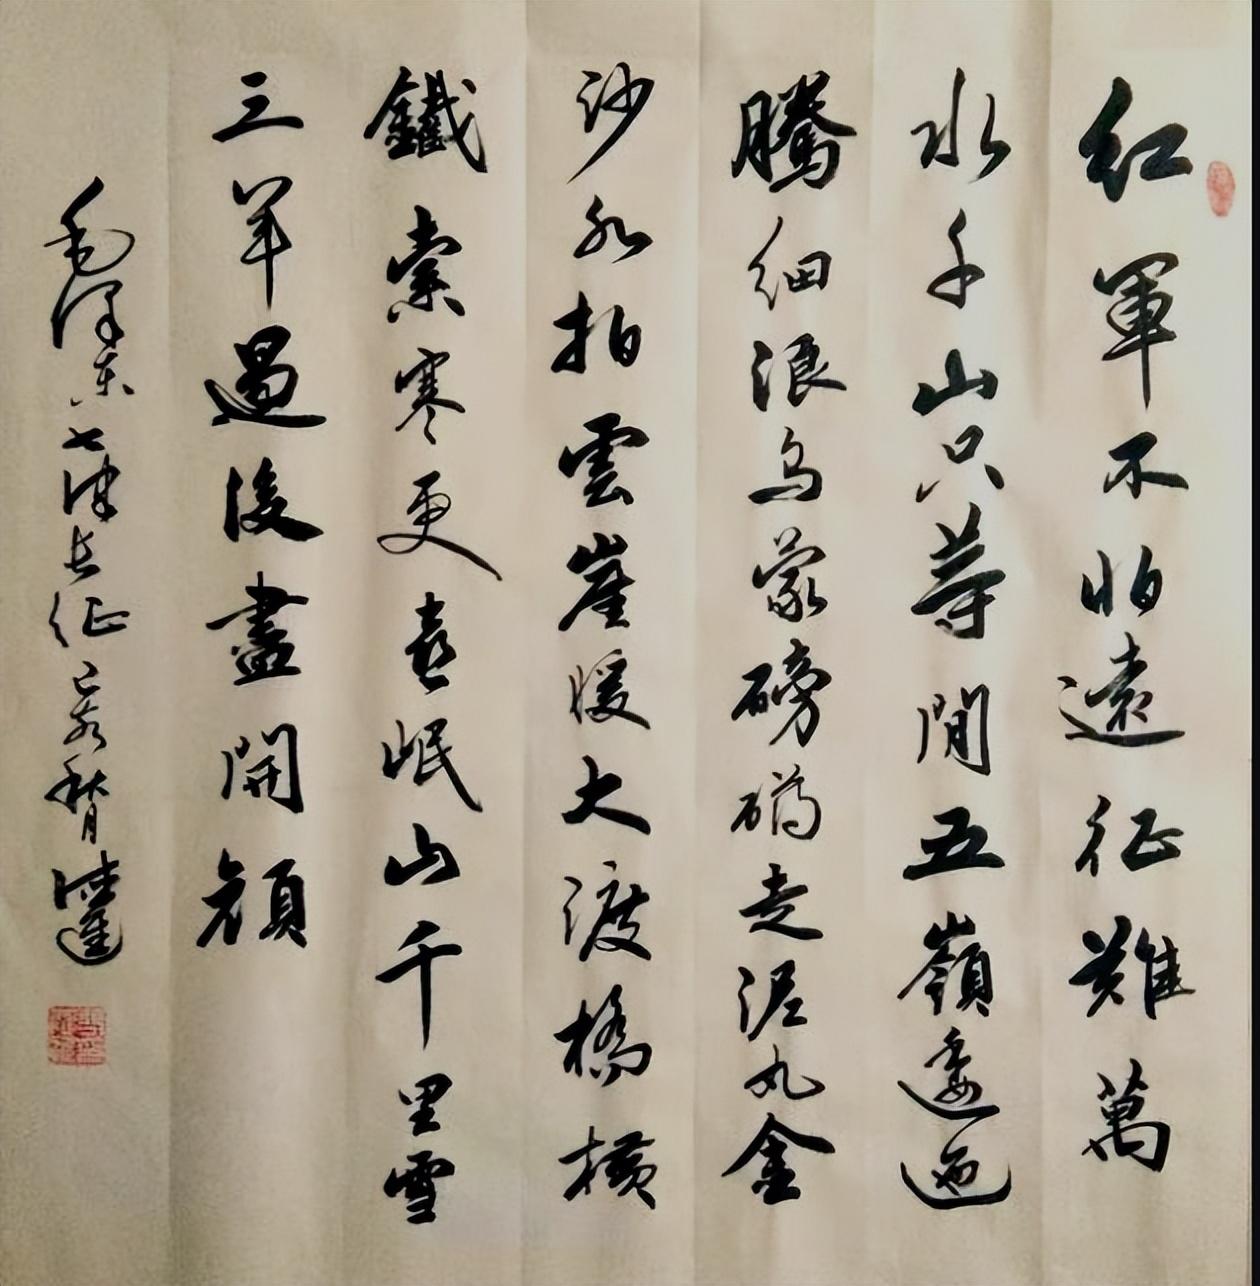 紅軍不怕遠征難萬
水千山只等閒五嶺逶迤
騰細浪烏蒙磅礴走泥丸金
沙水拍雲崖暖大渡橋橫
鐵索寒更喜岷山千里雪
三軍過後盡開顏
毛澤東七律長征己亥秋月